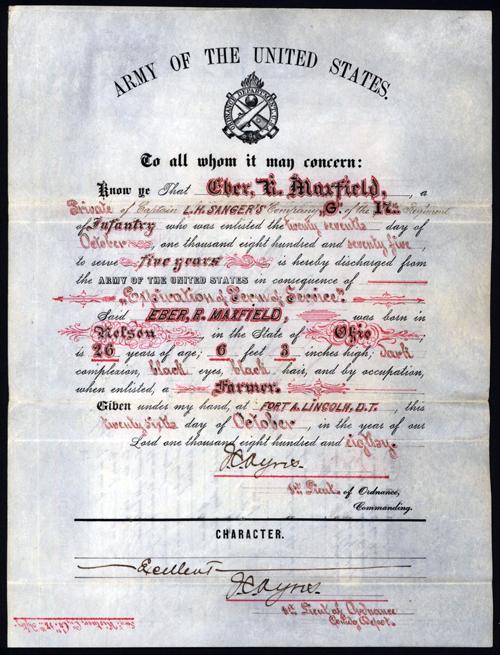 ARMY OF THE UNITED STATES.
ORDNANCE DEPARTMENT U.S.A.
To all whom it may concern:
Know ye That Eber, R. Maxfield, a
Private of Captain L.H. SANGER'S Company, G. of the 17th Regiment
of Infantry who was enlisted the twenty seventh day of
October one thousand eight hundred and seventy five,
to serve five years is hereby discharged from
the ARMY OF THE UNITED STATES in consequence of
Expiration of Term of Service.
Said EBER, R. MAXFIELD, was born in
Nelson, in the State of Ohio
is 26 years of age; 6 feet 3 inches high; dark
complexion, black eyes, black hair, and by occupation,
when enlisted, a Farmer.
Given under my hand, at FORT A. LINCOLN, D.T. , this
twenty sixth day of October, in the year of our
Lord one thousand eight hundred and eighty.
1st Lieut. of Ordnance,
Commanding.
CHARACTER.
Excellent
1st Lieut of Ordnance
Depot.